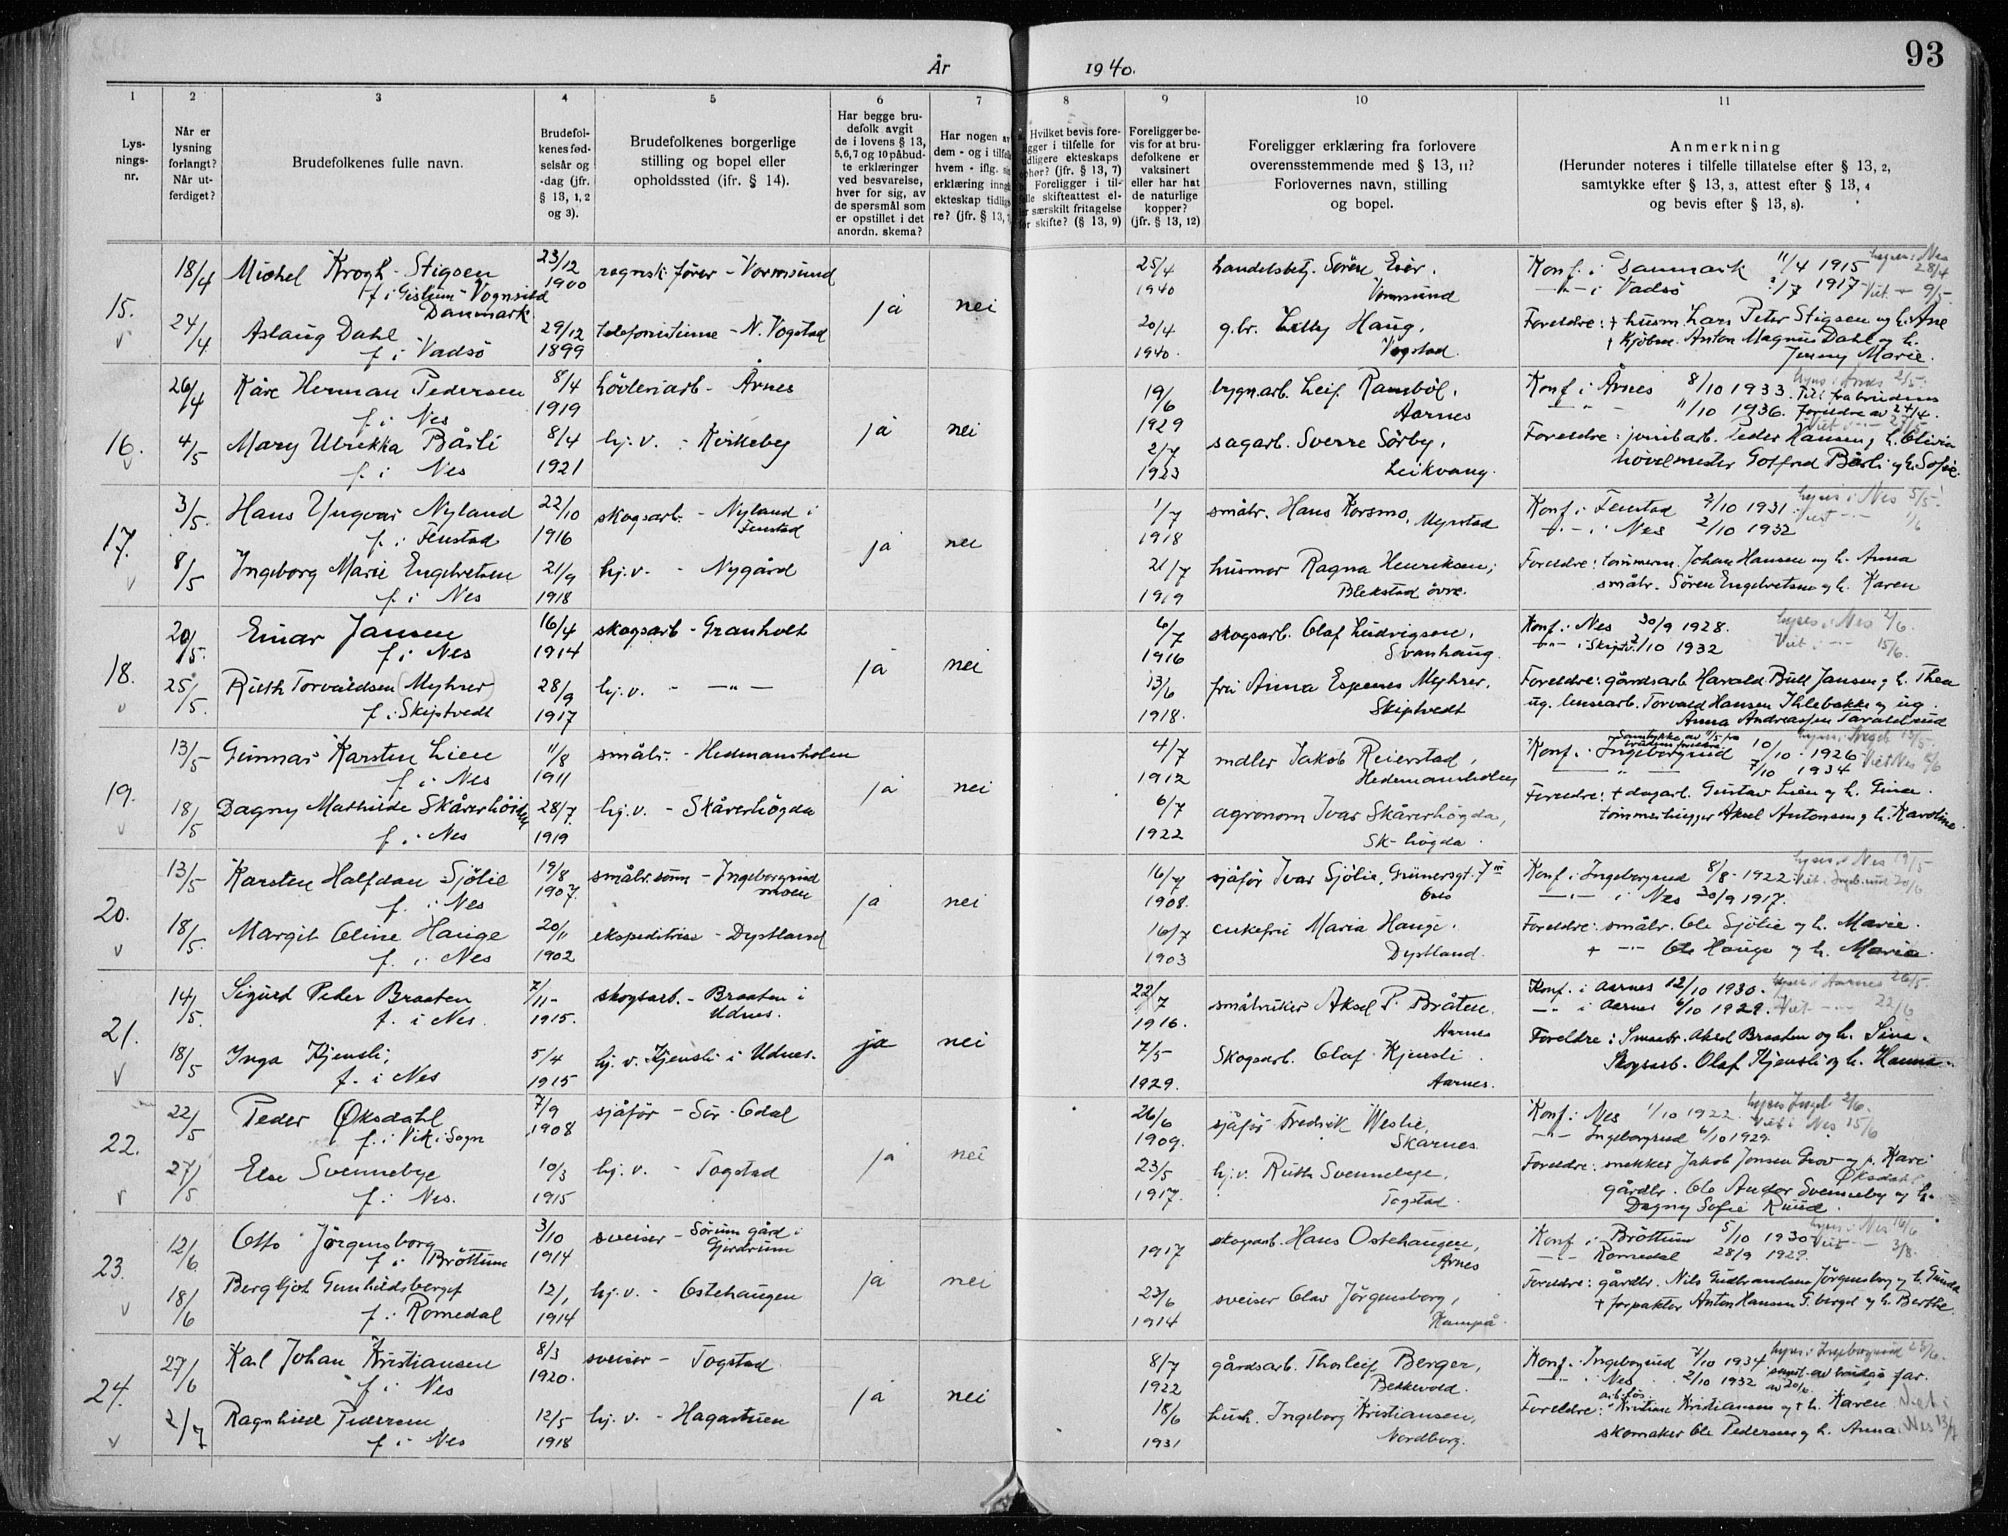 93
År 1940.
1 2 3 4 5 6 7 8 9 10 11
Lys-
nings-
nr.
Når er
lysning
forlangt?
Når ut-
ferdiget?
Brudefolkenes fulle navn.
Brudefol-
kenes fød-
selsår og
-dag (jfr.
§ 13, 1, 2
og 3).
Brudefolkenes borgerlige
stilling og bopel eller
opholdssted (ifr. § 14).
Har begge bru-
defolk avgit
de i lovens § 13,
5,6,7 og 10 påbud-
te erklæringer
ved besvarelse,
hver for sig, av
de spørsmål som
er opstillet i det
anordn. skema?
Har nogen av
dem - og i tilfelle
hvem - iflg.
erklæring inngått
ekteskap tidlige-
re? (jfr. § 13,
Hvilket bevis fore-
ligger i tilfelle for
tidligere ekteskaps
ophør? (jfr. § 13, 7)
Foreligger i til-
felle skifteattest el-
ler særskilt fritagelse
for skifte? (§ 13, 9)
Foreligger be-
vis for at bru-
defolkene er
vaksinert
eller har hat
de naturlige
kopper?
(jfr. § 13, 12)
Foreligger erklæring fra forlovere
overensstemmende med § 13, 11?
Forlovernes navn, stilling
og bopel.
Anmerkning
(Herunder noteres i tilfelle tillatelse efter § 13, 2,
samtykke efter § 13, 3, attest efter § 13, 4
og bevis efter § 13, 8).
15.
18/4 Michel Krogh-Stigsen 23/12 1900 regnsk.fører - Vormsund
f. i Gislum - Vognsild
Danmark
24/4 Aslaug Dahl 29/12 1899 telefonistinne - N. Vogstad
f. i Vadsö
ja nei
25/4 1940 handelsbetj. Sören Eier,
Vormsund
20/4 1940. g.br. Lilly Haug,
Vogstad.
Konf. i Danmark 11/4 1915 lyses i Nes 28/4
-"- i Vadsö 2/7 1917 Viet -"- 9/5.
Foreldre: + husm. Lars Peter Stigsen og h. Ane
+ kjöbm. Anton Magnus Dahl og h.
Jenny Marie.
16.
26/4 Kåre Herman Pedersen 8/4 1919 hövleriarb - Årnes
f. i Nes
4/5 Mary Ulrikka Bårli 8/4 1921 hj.v. - Kirkeby
f. i Nes
ja nei
19/6 1929 bygn.arb. Leif Rambøl,
Aarnes
2/7 1923 sagarb. Sverre Sörby,
Leikvang.
Konf i Årnes 8/10 1933. lyses i Årnes 2/5.
-"- 11/10 1936. Till. fra brudens
foreldre av 24/4.
Foreldre: jernb.arb. Peder Hansen og h. Olivia
hövelmester Gotfred Bårli og h. Sofie.
17.
3/5. Hans Yngvar Nyland 22/10 1916 skogsarb. - Nyland i
Fenstad
f. i Fenstad
8/5 Ingeborg Marie Engebretsen 21/9 1918 hj.v. - Nygård
f. i Nes
ja nei
1/7 1918 småbr. Hans Korsmo, Myrstad
21/7 1919 husmor Ragna Henriksen,
Blekstad övre.
Konf. i Fenstad 4/10 1931. lyses i Nes 5/5.
-"- i Nes 2/10 1932 Viet -"- 1/6
Foreldre: tömmerm. Johan Hansen og h. Anna
småbr. Sören Engebretsen og h. Karen
18.
20/5. Einar Jansen 16/4 1914 skogsarb - Granholt
f. i Nes
25/5. Ruth Torvaldsen (Myhrer) 28/9 1917 hj.v. - -"-
f. i Skiptvedt
ja nei
6/7 1916 skogsarb. Olaf Ludvigsen,
Svanhaug.
13/6 1918. fru Anna Espenes Myhrer,
Skiptvedt
Konf. i Nes 30/9 1928. lyses i Nes 2/6.
-"- i Skiptv. 2/10 1932 Viet i -"- 15/6.
Foreldre: gårdsarb. Harald Bull Jansen og h. Thea
ug. lensearb. Torvald Hansen Ihlebakke og ug.
Anna Andreassen Taraldrud
19.
13/5 Gunnar Karsten Lien 11/8 1911 småbr. - Hedemansholen
f. i Nes
18/5 Dagny Mathilde Skårerhögda 28/7. 1919 hj.v. - Skårerhögda
f. i Nes
ja nei
4/7 1912 mdler Jakob Reierstad,
Hedemansholen
6/7 1922 agronom Ivar Skårerhögda,
Sk-högda.
Samtykke av 4/5 fra
brudens foreldre
Konf. i Ingeborgrud 10/10 1926 Viet Nes 8/6
-"- 7/10 1934
Foreldre: + dagarb. Gustav Lien og h. Gina.
tömmerhugger Aksel Antonsen og h. Karoline.
20.
13/5 Karsten Halfdan Sjölie 19/8 1907. småbr.sönn - Ingeborgrud
moen
f. i Nes
18/5. Margit Oline Hauge 20/11 1902 ekspeditrise - Dystland
f. i Nes
ja nei
16/7 1908. sjåför Ivar Sjölie, Grünersgt. 7 III
Oslo
16/7 1903 enkefru Maria Hauge,
Dystland.
Konf. i Ingeborgrud 8/8 - 1922. lyses i Nes 19/5
-"- i Nes 30/9 1917.
Foreldre: småbr. Ole Sjölie og h. Marie.
+ -"- Ole Hauge og h. Maria.
21.
14/5. Sigurd Peder Braaten 7/11- 1915. skogsarb. - Braaten i
Udnes.
f. i Nes.
18/5 Inga Kjensli, 5/4 1915 hj.v. Kjensli i Udnes.
f. i Nes
ja nei
22/7 1916. småbruker Aksel P. Bråten,
Aarnes
7/5 1929. Skogsarb. Olaf Kjensli.
Aarnes.
Konf. i Aarnes 12/10 1930. lyses i Aarnes 26/5.
-"- i Aarnes 6/10 1929. Viet -"- 22/6
Foreldre: Smaabr. Aksel Braaten og h. Sina.
Skogsarb. Olaf Kjensli og h. Hanna.
22.
22/5 Peder Øksdahl 7/9 1908 sjåför - Sör-Odal
f. i Vik i Sogn
27/5 Else Svennebye 10/3 1915 hj.v. - Togstad
f. i Nes.
ja nei
26/6 1909. sjåför Fredrik Weslie,
Skarnes
23/5 1917. hj.v. Ruth Svennebye,
Togstad.
Konf. i Nes 1/10 1922. lyses Ingeb. 2/6.
-"- Ingeborgrud 6/10 1929. Viet i Nes 15/6
Foreldre: snekker Jakob Jonsen Grov og p. Kari
Øksdahl
gårdbr. Ole Andor Svenneby og h.
Dagny Sofie Ruud.
23.
12/6 Otto Jörgensborg 3/10 1914 sveiser - Sörum gård i
Gjerdrum
f. i Bröttum
18/6 Bergljot Gunhildsberget 12/1 1914 hj.v. - Ostehaugen
f. i Romedal
ja nei
1917 skogsarb. Hans Ostehaugen,
Årnes
23/6 1914 sveiser Olav Jörgensborg,
Hampå.
Konf. i Bröttum 5/10 1930 lyses i Nes 16/6
-"- Romedal 28/9 1929. Viet -"- 3/8.
Foreldre: gårdbr. Nils Gudbrandsen Jörgensborg og h. Gunda
+ forpakter Anton Hansen G.berget og h. Berthe.
24.
27/6 Karl Johan Kristiansen 8/3 1920. sveiser - Togstad
f. i Nes
2/7 Ragnhild Pedersen 12/5 1918 hj.v. - Hagastuen
f. i Nes
ja nei
8/7 1922 gårdsarb. Thorleif Berger,
Bekkevold.
18/6 1931 hush. Ingeborg Kristiansen,
Nordberg.
Konf. i Ingeborgrud 7/10 1934 lyses i Ingeborgrud 23/6.
-"- i Nes 2/10 1932 samt. av brudgs far.
av 20/6.
Foreldre: arb.for. Kristian Kristiansen og + h. Karen. Viet i
skomaker Ole Pedersen og h. Anna. Nes 13/7